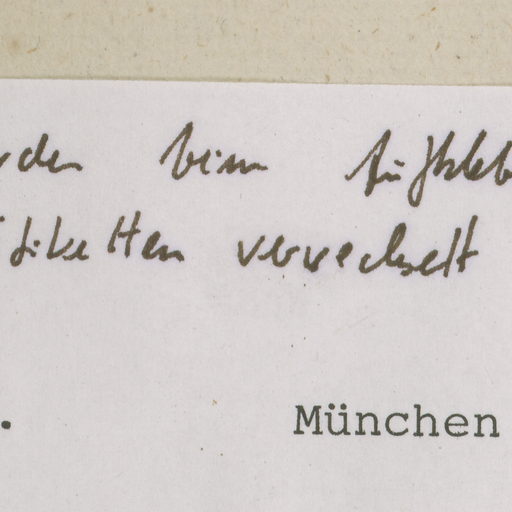 rden beim Aufkleb
Etiketten verwechselt
. München